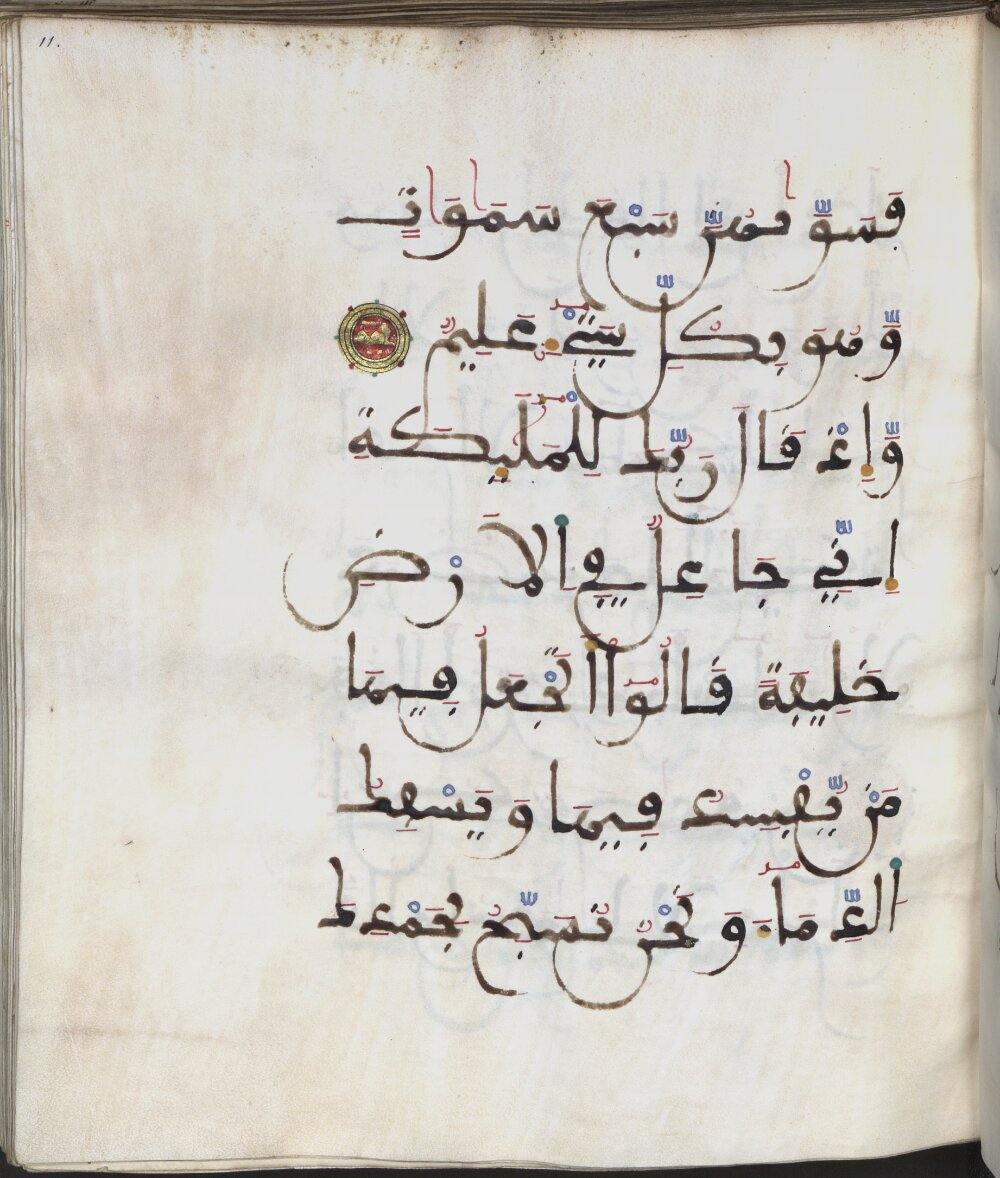 11.
فَسَوّٰىٰهُنَّ سَبْعَ سَمَٰوَٰتٍ
وَّهُوَ بِكُلِّ شَيْءٍ عَلِيمٌ
وَّإِذْ قَالَ رَبُّكَ لِلْمَلَٰٓئِكَةِ
إِنِّي جَاعِلٌ فِي الَارْضِ
خَلِيفَةً قَالُوٓاْ أَتَجْعَلُ فِيهَا
مَنْ يُّفْسِدُ فِيهَا وَيَسْفِكُ
الدِّمَآءَ وَنَحْنُ نُسَبِّحُ بِحَمْدِكَ